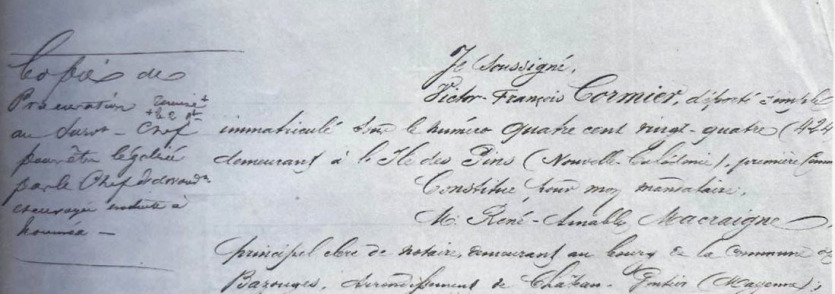 Copie de
Procuration remise
au Surv. - Chef
pour être légalisée
par le Chef d'
et envoyée ensuite à
Nouméa -
Je soussigné,
Victor-François Cormier, déporté simple
immatriculé sous le numéro quatre cent vingt-quatre (424
demeurant à l'Ile des Pins (Nouvelle-Calédonie), première Comm
Constitue pour moy mandataire,
M. René-Amable Macraigne,
principal clerc de notaire, demeurant au bourg de la commune de
Bazouges, arrondissement de Château-Gontier (Mayenne);